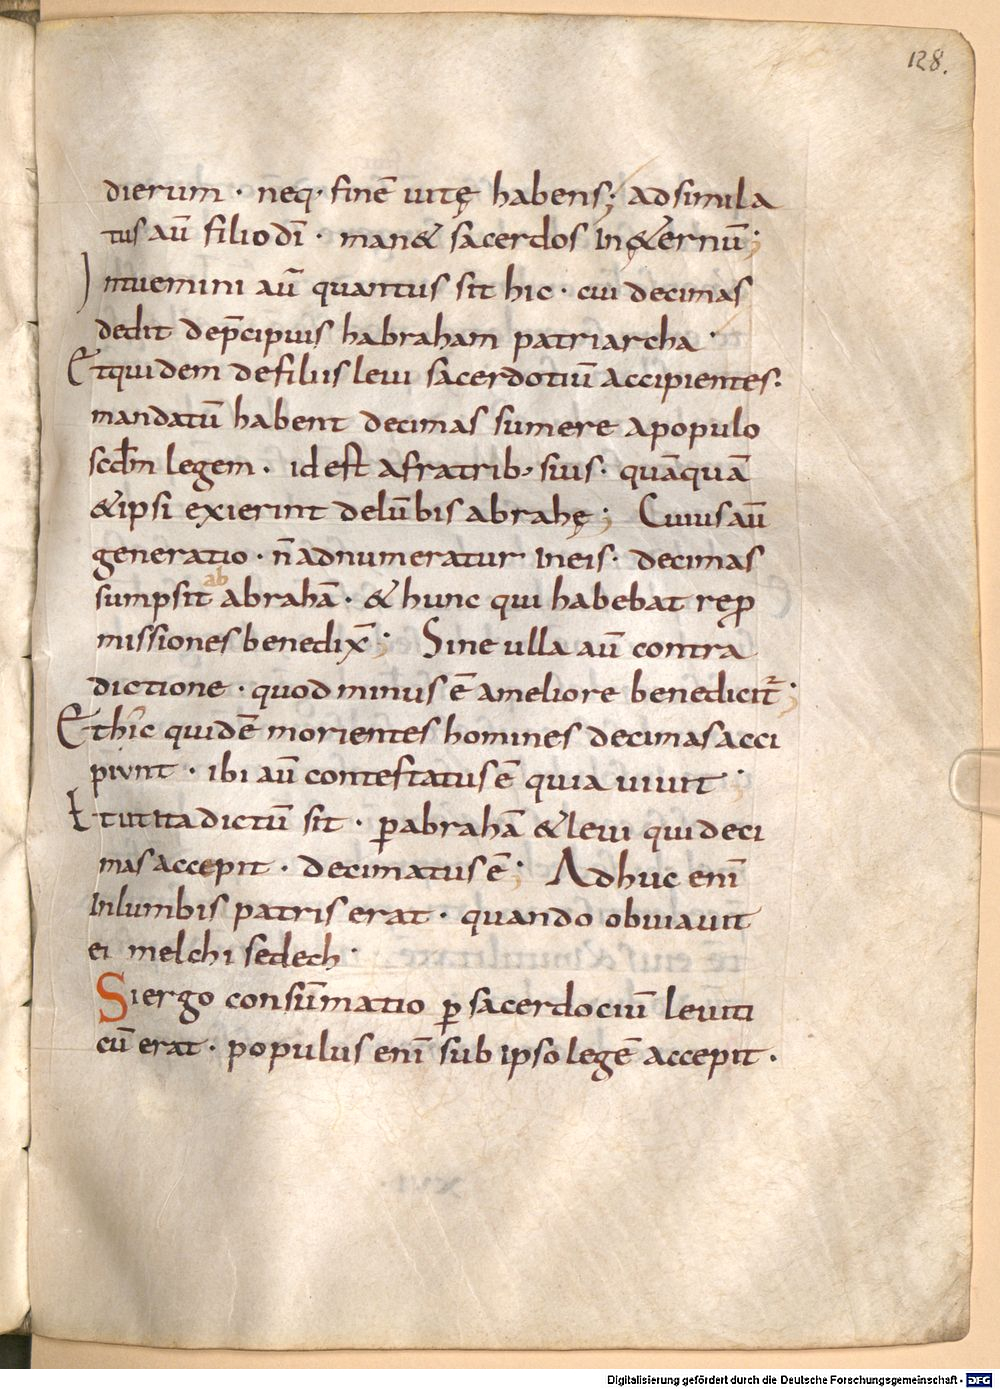 128.
dierum · neq· finē uitę habens; adsimila
tus aū filio dī · man& sacerdos In&ernū;
Intuemini aū quantus sit hic · cui decimas
dedit dep̄cipuis habraham patriarcha ·
Etquidem defiliis leui sacerdotiū accipientes·
mandatū habent decimas sumere apopulo
scdm̄ legem · id est afratrib; suis · quāquā
&ipsi exierint delūbis abrahę; Cuius aū
generatio · n̄ adnumeratur Ineis · decimas
ab
sumpsit abrahā · & hunc qui habebat rep̱
missiones benedix̄; Sine ulla aū contra
dictione · quod minus ē ameliore benedicit̄;
Ethic quidē morientes homines decimas acci
piunt · ibi aū contestatus ē quia uiuit;
Et ut ita dictū sit · p̱ abrahā & leui qui deci
mas accepit · decimatus ē; Adhuc enī
Inlumbis patris erat · quando obuiauit
ei melchisedech ·
Si ergo consūmatio p̱ sacerdociū leuiti
cū erat · populus enī sub ipso legē accepit ·
Digitalisierung gefördert durch die Deutsche Forschungsgemeinschaft · DFG